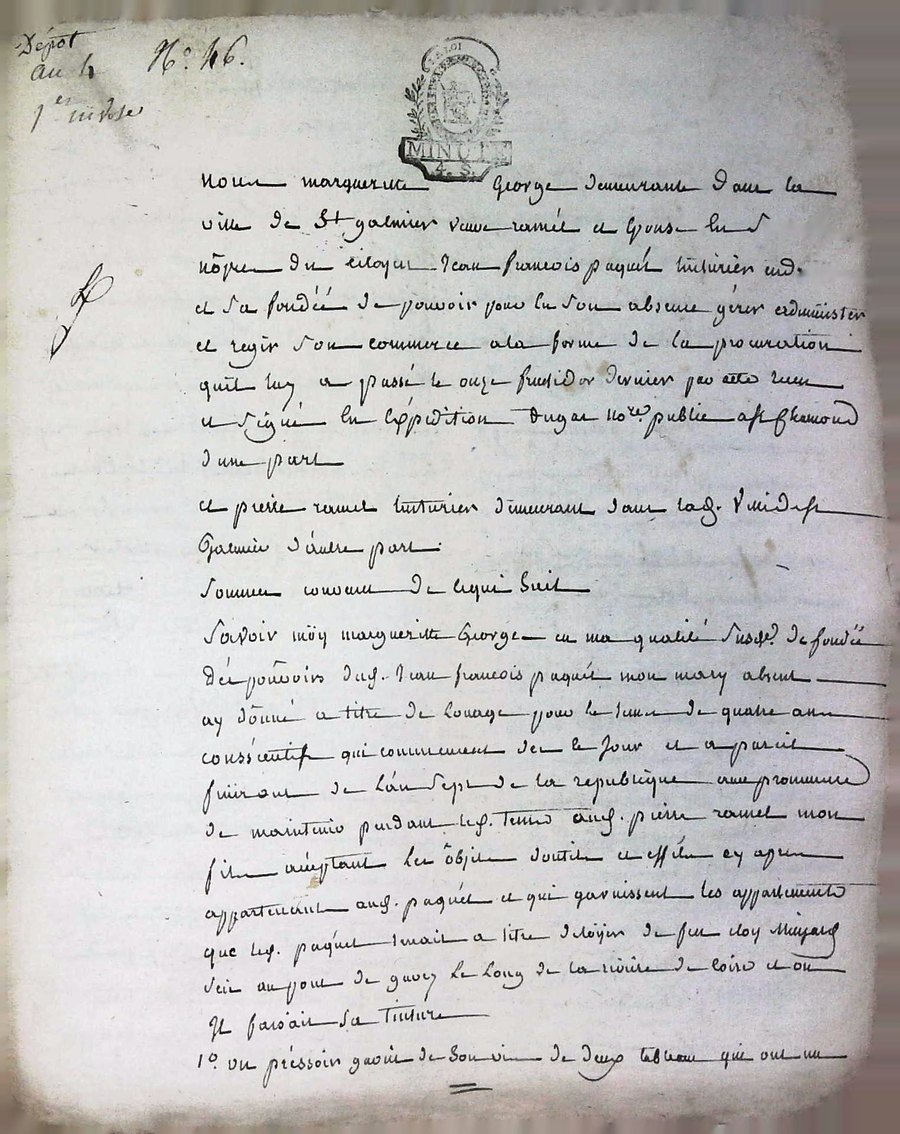 Dépôt
au 4
1er nivose
N° 46.
LA LOI
MINUTE
4. S.
Nous marguerite George demeurant dans la
ville de St galmier veuve ramel et Epouse En S
nôpce du citoyen Jean françois paquét tinturier aud.
et Sa fondéé de pouvoir pour En Son absence gérer administrer
et regir Son commerce a la forme de la procuration
quil luy a passé le onze fructidor dernier par acte recu
et Signé En Expédition dugas nore. public a St Chamond
dune part
et pierre ramel tinturier demeurant dans lad. ville de St
Galmier d'autre part.
Sommes convenu de cequi Suit
Savoir möy marguerite George en ma qualité Susde. de fondéé
dés pouvoirs dud. Jean françois paquét mon mary absent
ay dônné a titre de louage pour le tems de quatre ans
consécutifs qui commencent dès le Jour et a pareil
finiront de L'an Sept de la republique avec promesse
de maintenir pendant led. tems aud. pierre ramel mon
fils accéptant les ôbjets d'outils et effets cy apres
appartenant aud. paquét et qui garnissent les appartements
que led. paquét tenait a titre de loyer de feu eloy
au pont de le long de la riviére de loire et ou
Il faisait Sa Tinture
1° un préssoir garni de Son vis de deux tableau qui ont un